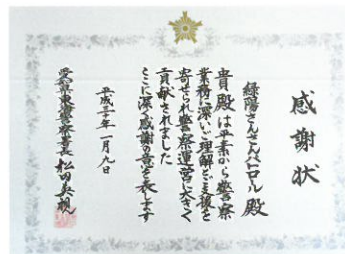 感謝状
緑陽さんさんパトロル 殿
貴殿は平素から警察
業務に深いご理解とご支援を
寄せられ警察運営に大きく
貢献されました
ここに深く感謝の意を表します
一月九日
警察署長